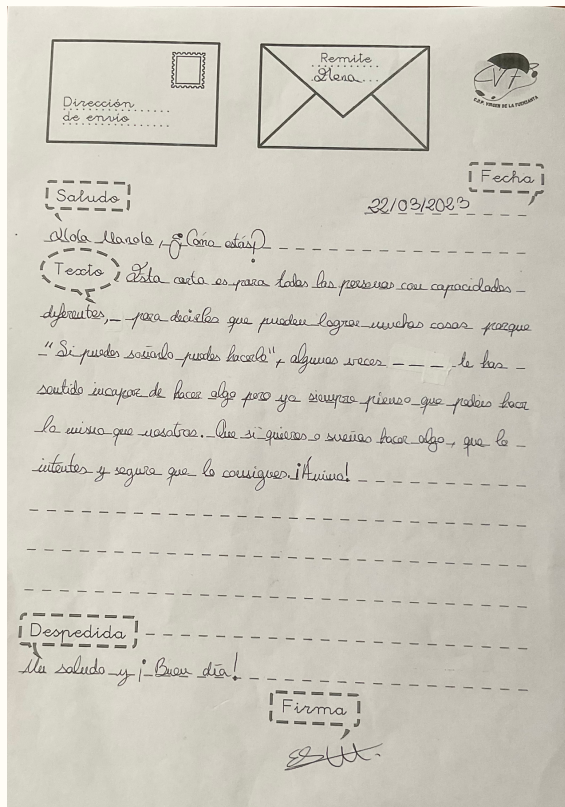 Dirección
de envío
Remite
Elena
C.D.P. VIRGEN DE LA FUENSANTA
Fecha
22/03/2023
Saludo
Hola Manolo, ¿Cómo estás?
Texto
Esta carta es para todas las personas con capacidades
diferentes, para decirles que pueden lograr muchas cosas porque
"Si puedes soñarlo puedes hacerlo", algunas veces te has
sentido incapaz de hacer algo pero yo siempre pienso que podéis hacer
lo mismo que nosotros. Que si quieres o sueñas hacer algo, que lo
intentes y seguro que lo consigues. ¡Ánimo!
Despedida
Un saludo y ¡Buen día!
Firma